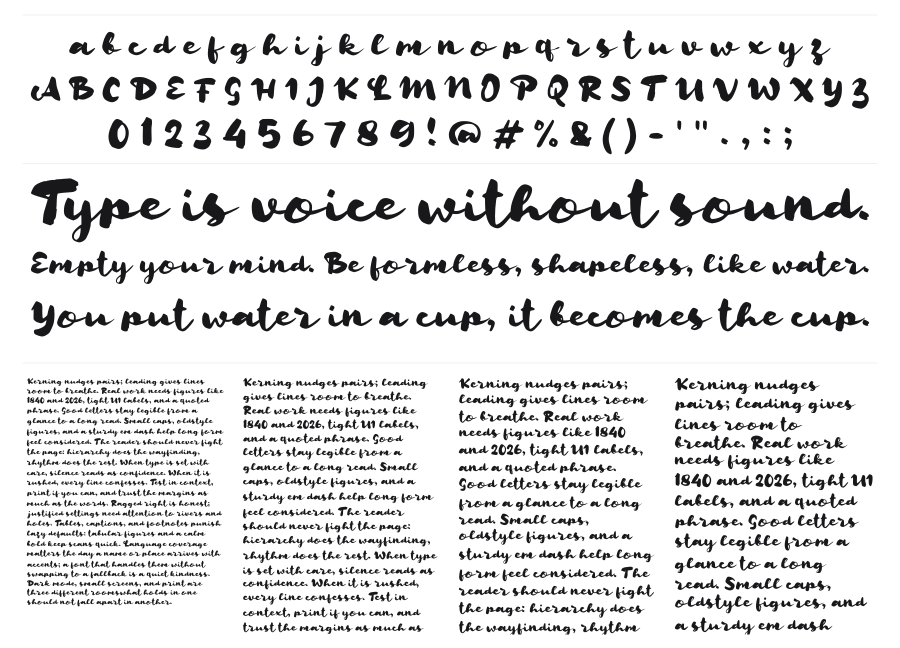 a b c d e f g h i j k l m n o p q r s t u v w x y z
A B C D E F G H I J K L M N O P Q R S T U V W X Y Z
0 1 2 3 4 5 6 7 8 9 ! @ # % & ( ) - ' " . , : ;
Type is voice without sound.
Empty your mind. Be formless, shapeless, like water.
You put water in a cup, it becomes the cup.
Kerning nudges pairs; leading gives lines
room to breathe. Real work needs figures like
1840 and 2026, tight UI labels, and a quoted
phrase. Good letters stay legible from a
glance to a long read. Small caps, oldstyle
figures, and a sturdy em dash help long form
feel considered. The reader should never fight
the page: hierarchy does the wayfinding,
rhythm does the rest. When type is set with
care, silence reads as confidence. When it is
rushed, every line confesses. Test in context,
print if you can, and trust the margins as
much as the words. Ragged right is honest;
justified settings need attention to rivers and
holes. Tables, captions, and footnotes punish
lazy defaults: tabular figures and a calm
bold keep scans quick. Language coverage
matters the day a name or place arrives with
accents; a font that handles them without
swapping to a fallback is a quiet kindness.
Dark mode, small screens, and print are
three different roomswhat holds in one
should not fall apart in another.
Kerning nudges pairs; leading
gives lines room to breathe.
Real work needs figures like
1840 and 2026, tight UI labels,
and a quoted phrase. Good
letters stay legible from a
glance to a long read. Small
caps, oldstyle figures, and a
sturdy em dash help long form
feel considered. The reader
should never fight the page:
hierarchy does the wayfinding,
rhythm does the rest. When type
is set with care, silence reads as
confidence. When it is rushed,
every line confesses. Test in
context, print if you can, and
trust the margins as much as
Kerning nudges pairs;
leading gives lines room
to breathe. Real work
needs figures like 1840
and 2026, tight UI labels,
and a quoted phrase.
Good letters stay legible
from a glance to a long
read. Small caps,
oldstyle figures, and a
sturdy em dash help long
form feel considered. The
reader should never fight
the page: hierarchy does
the wayfinding, rhythm
Kerning nudges
pairs; leading gives
lines room to
breathe. Real work
needs figures like
1840 and 2026, tight UI
labels, and a quoted
phrase. Good letters
stay legible from a
glance to a long
read. Small caps,
oldstyle figures, and
a sturdy em dash